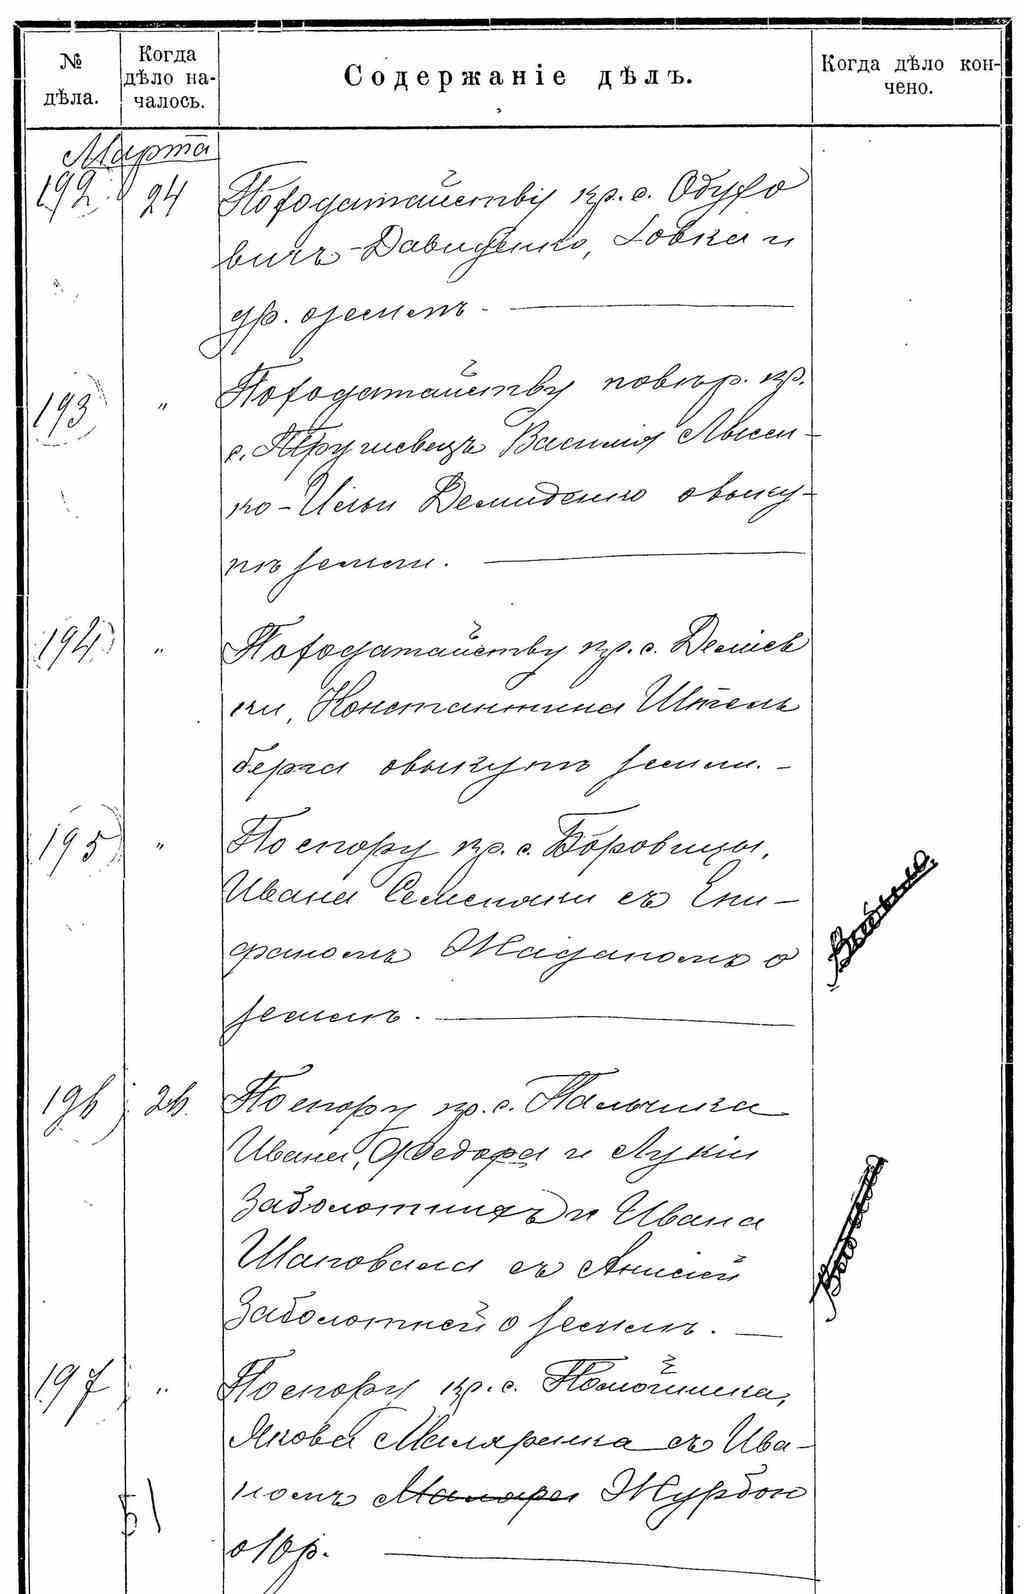 № дѣла.
Когда дѣло началось.
Содержаніе дѣлъ.
Когда дѣло кончено.
Марта
192 24 По ходатайству кр. с. Обухо
вичъ Давиденко, Ловка и
др. о земл.
193 " По ходатайству повѣр. кр.
с. Трушевецъ Василія Лысен-
ко - Ильи Демиденко о выку-
пѣ земли.
194 " По ходатайству кр. с. Деміев
ки, Константина Штель
берга о выкупѣ земли. -
195 " По спору кр. с. Боровицы,
Ивана Семеняки съ Епи-
фаномъ Жаданомъ о
землѣ.
196 26. По спору кр. с. Пальчика
Ивана, Федора и Лукіи
Заболотныхъ и Ивана
Шаповала съ Анисіей
Заболотней о землѣ.
197 " По спору кр. с. Помойника,
Якова Маляренка съ Ива-
номъ Маляре Журбою
о 10 р.
51